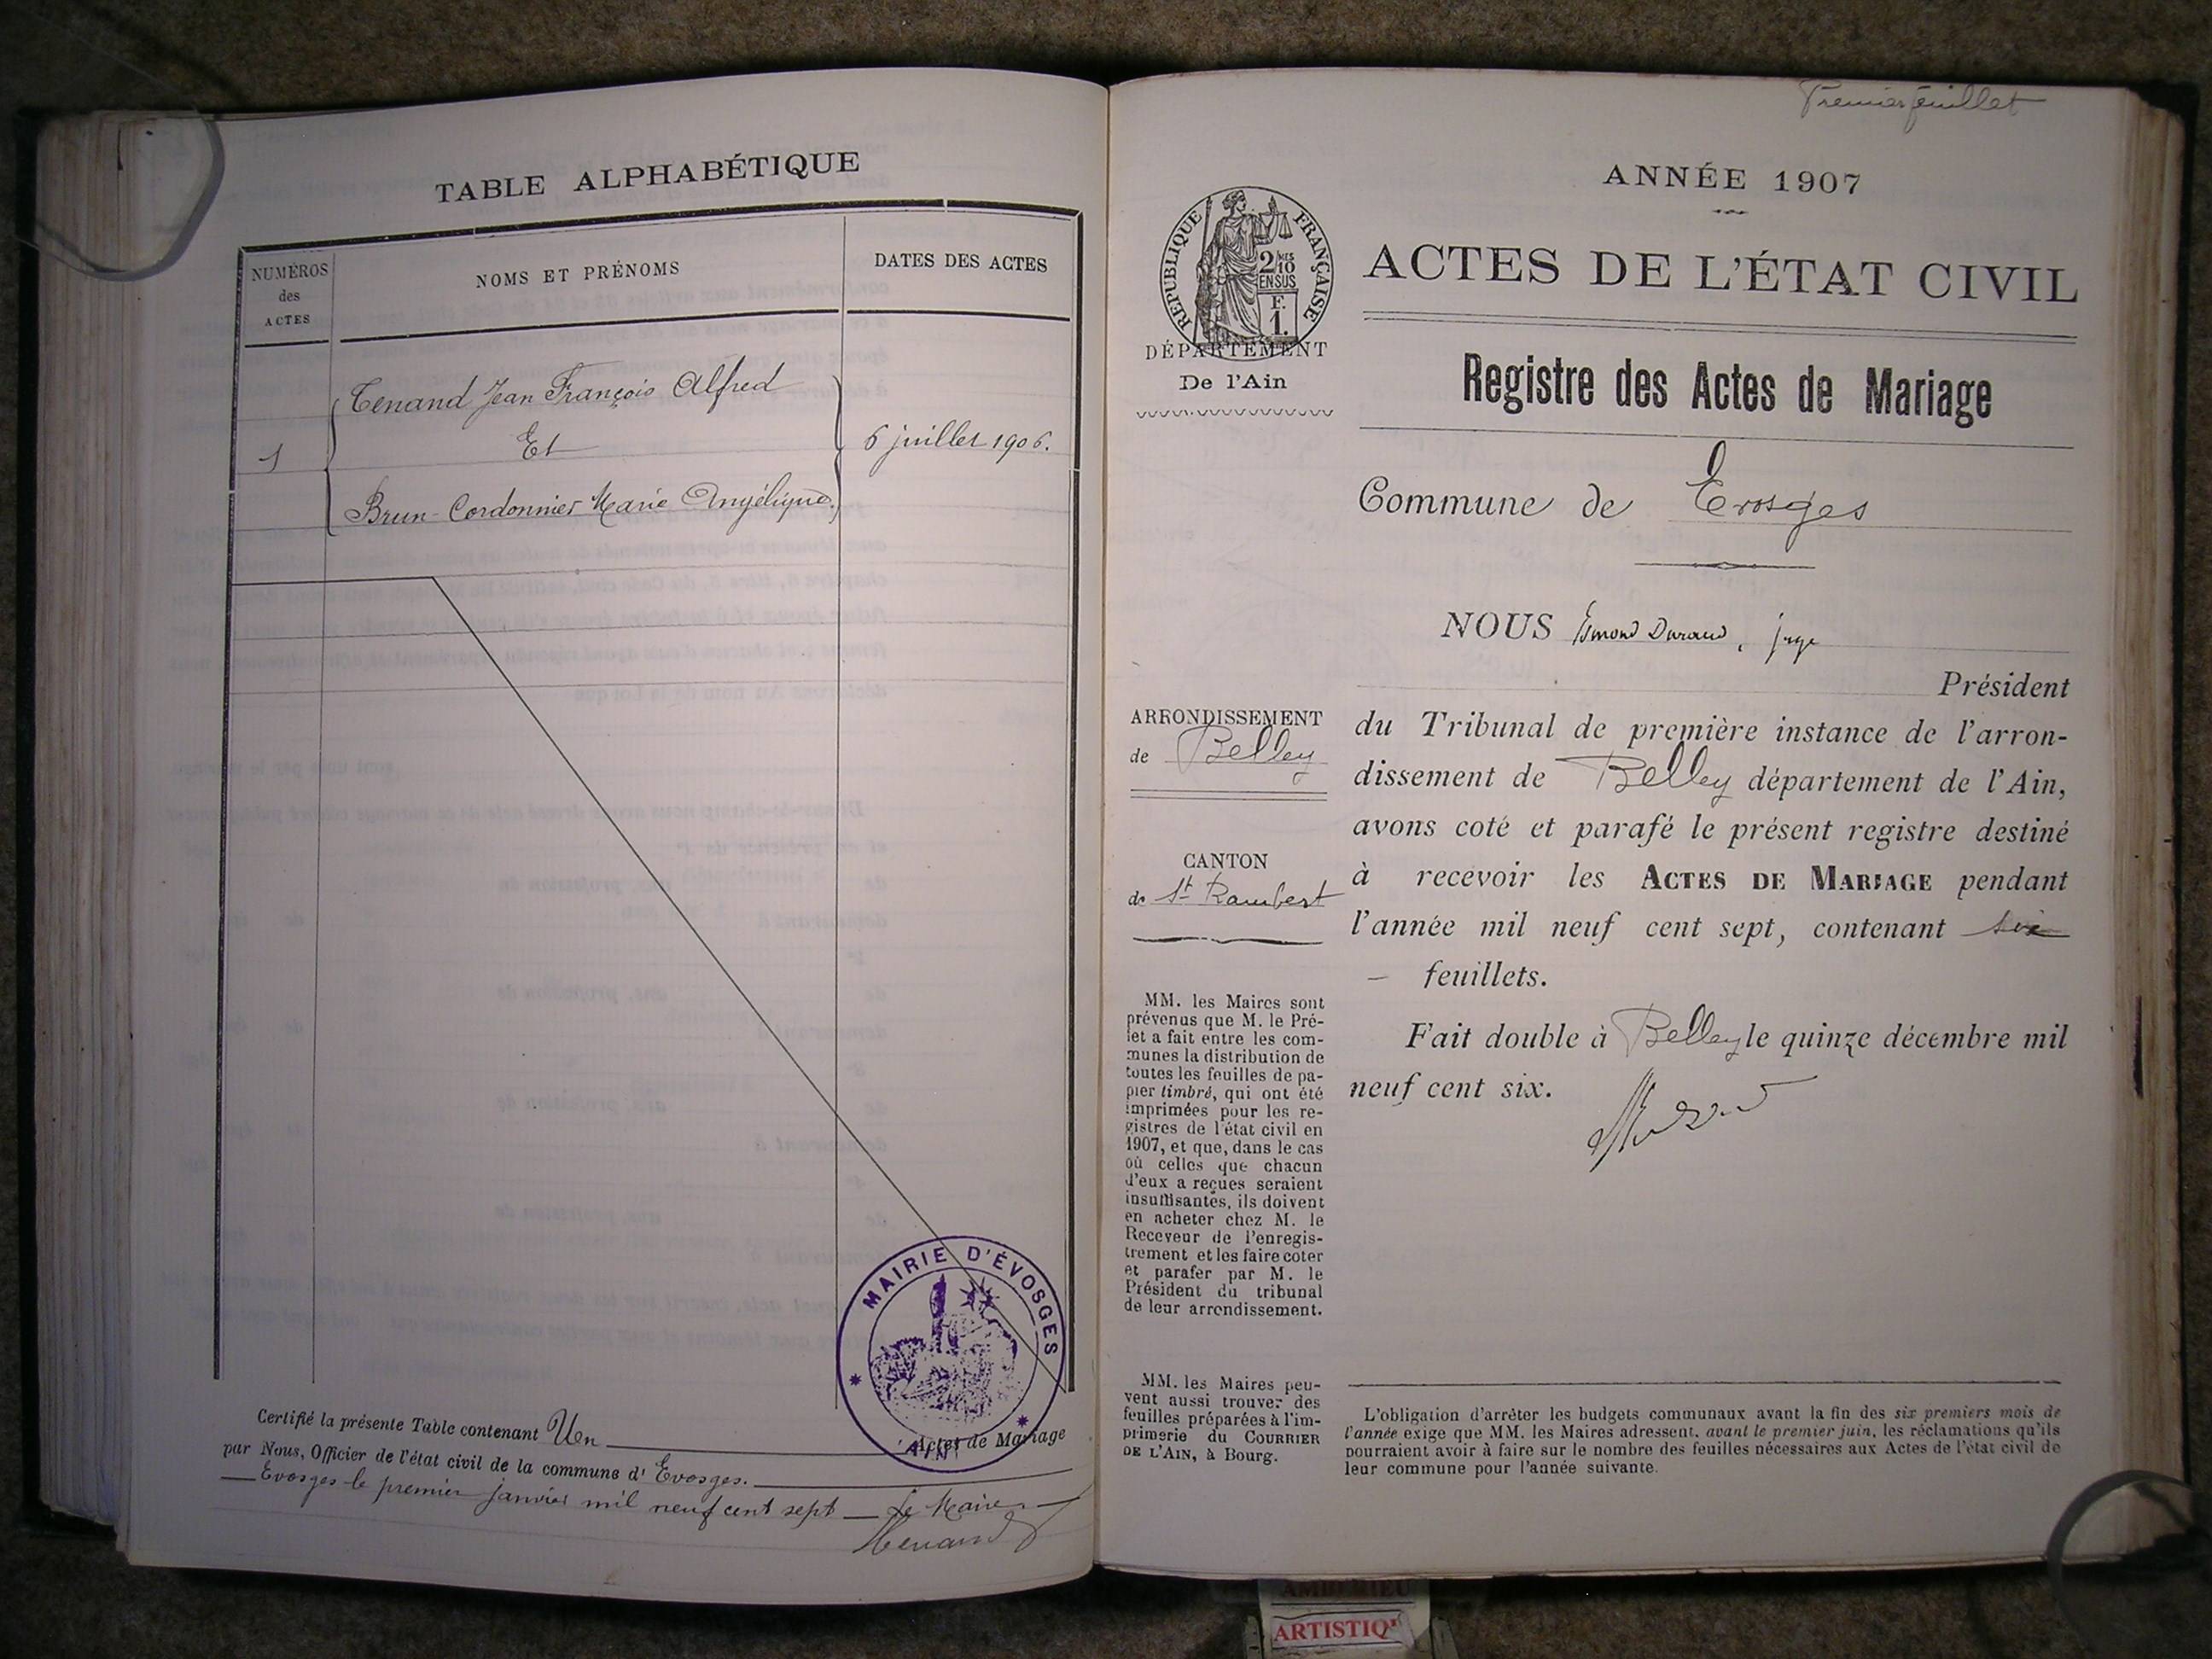 TABLE ALPHABÉTIQUE
NUMÉROS
des
ACTES
NOMS ET PRÉNOMS
DATES DES ACTES
Tenand Jean François Alfred
1
Et
6 juillet 1906.
Brun-Cordonnier Marie Angélique.
MAIRIE D'ÉVOSGES
AIN
Certifié la présente Table contenant Un
Actes de Mariage
par Nous, Officier de l'état civil de la commune d' Evosges.
Evosges le premier janvier mil neuf cent sept Le Maire
Tenand
Premier feuillet
ANNÉE 1907
RÉPUBLIQUE FRANÇAISE
2/10
EN SUS
F.
1.
DÉPARTEMENT
De l'Ain
ACTES DE L'ÉTAT CIVIL
Registre des Actes de Mariage
Commune de Evosges
NOUS Esmond Durand, juge
Président
du Tribunal de première instance de l'arron-
dissement de Belley département de l'Ain,
avons coté et parafé le présent registre destiné
à recevoir les ACTES DE MARIAGE pendant
l'année mil neuf cent sept, contenant six
feuillets.
Fait double à Belley le quinze décembre mil
neuf cent six.
ARRONDISSEMENT
de Belley
CANTON
de St Rambert
MM. les Maires sont
prévenus que M. le Pré-
fet a fait entre les com-
munes la distribution de
toutes les feuilles de pa-
pier timbré, qui ont été
imprimées pour les re-
gistres de l'état civil en
1907, et que, dans le cas
où celles que chacun
d'eux a reçues seraient
insuffisantes, ils doivent
en acheter chez M. le
Receveur de l'enregis-
trement et les faire coter
et parafer par M. le
Président du tribunal
de leur arrondissement.
MM. les Maires peu-
vent aussi trouver des
feuilles préparées à l'im-
primerie du COURRIER
DE L'AIN, à Bourg.
L'obligation d'arrêter les budgets communaux avant la fin des six premiers mois de
l'année exige que MM. les Maires adressent, avant le premier juin, les réclamations qu'ils
pourraient avoir à faire sur le nombre des feuilles nécessaires aux Actes de l'état civil de
leur commune pour l'année suivante.
AMBERIEU
ARTISTIQ